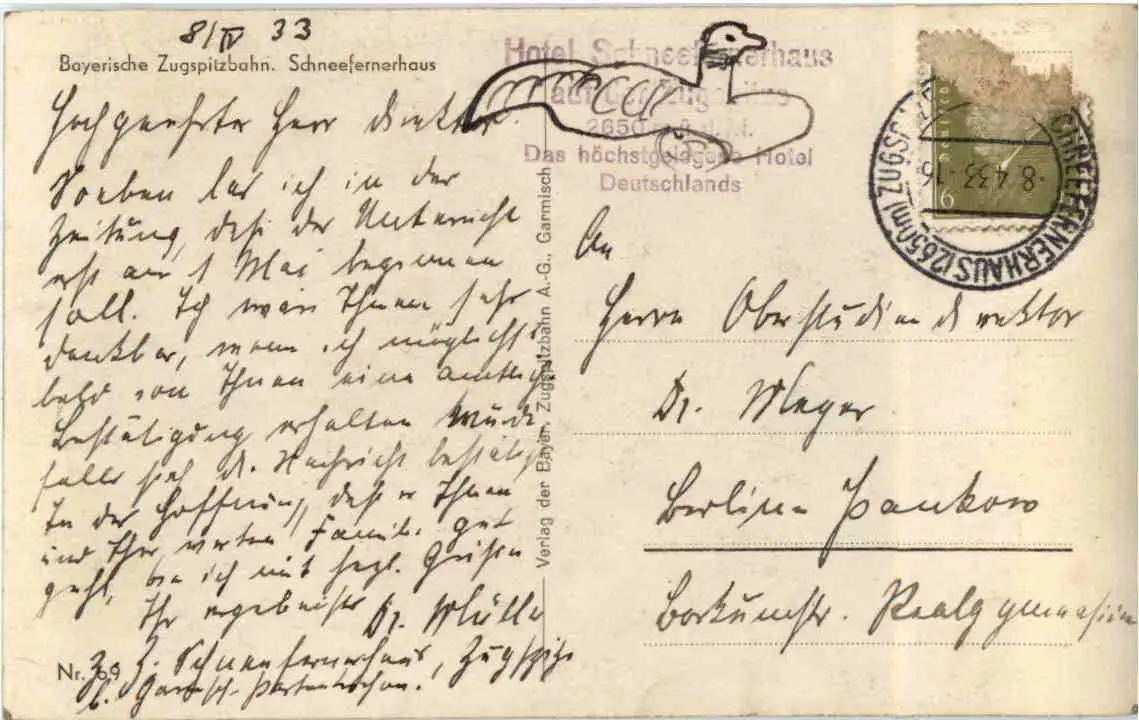 8/IV 33
Bayerische Zugspitzbahn. Schneefernerhaus
Hochgeehrter Herr Direktor.
Soeben las ich in der
Zeitung, daß der Unterricht
erst am 1 Mai beginnen
soll. Ich wäre Ihnen sehr
dankbar, wenn ich möglichst
bald von Ihnen eine amtliche
Bestätigung erhalten würde
falls sich d. Nachricht bestätigt
In der Hoffnung, daß es Ihnen
und Ihrer werten Familie gut
geht, bin ich mit herzl. Grüßen
Ihr ergebenster Dr. Müller
Z. Z. Schneefernerhaus, Zugspitze
b. Garmisch-Partenkirchen.
Nr. 69
Verlag der Bayer. Zugspitzbahn A.-G., Garmisch
Hotel Schneefernerhaus
auf der Zugspitze
2650 m ü. d. M.
Das höchstgelegene Hotel
Deutschlands
SCHNEEFERNERHAUS (2650m) ZUGSP
-8.4.33.-16
6
An
Herrn Oberstudiendirektor
Dr. Meyer
Berlin-Pankow
Borkumstr. Realgymnasium